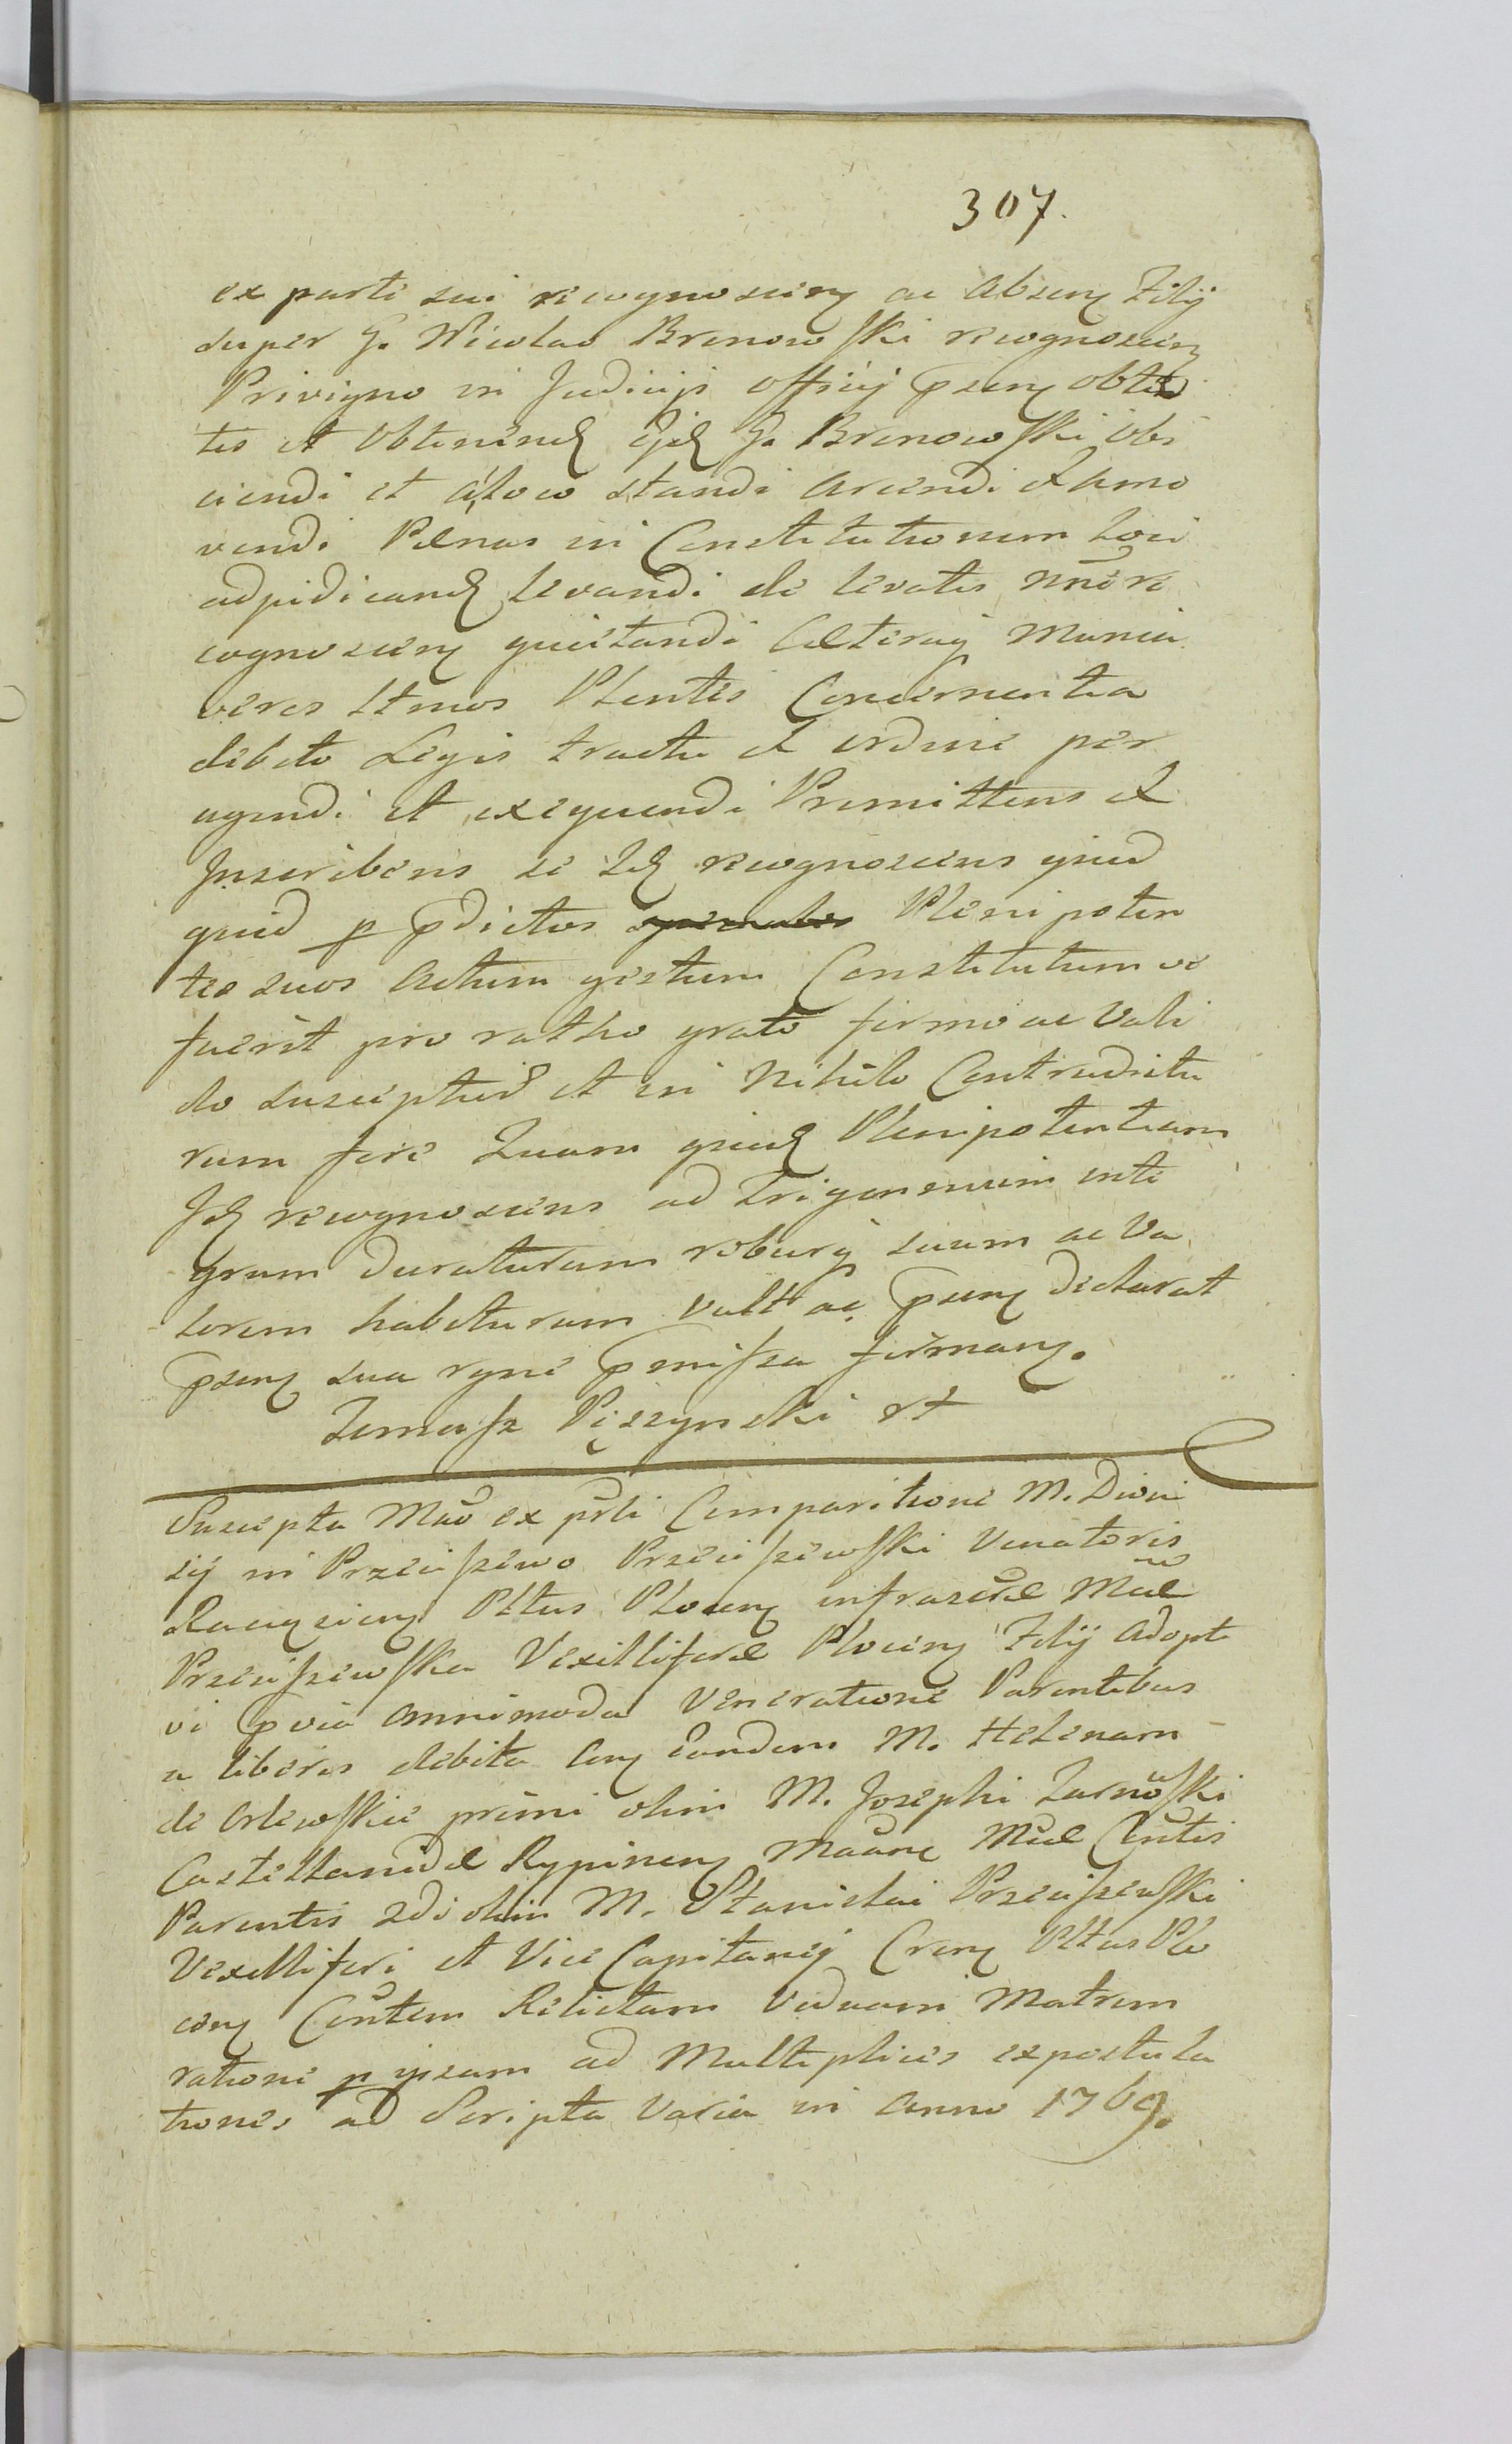 307.
ex parte sui recognoscen ac absen Filij
super G. Nicolao Bronowski recognoscen
Privigno in Judicijs officij psen obten
tis et obtinend ejd G. Bronowski obi
ciendi et a loco standi arcendi et amo
vendi Pœnas in Constitutionem loci
adjudicand levandi de levatis nn̄e re
cognoscen quietandi Cæteraq Munia
veros Ltmos Plentes Concernentia
debito Legis tractu et ordine per
agendi et exequendi Promittens et
Inscribens se Id recognoscens quid
quid p pdictos Plenipoten
tes suos Actum gestum Constitutum ve
fuerit pro ratho grato firmo ac vali
do suscepturū et in Nihilo Contradictu
rum fore Quam quid Plenipotentiam
Id recognoscens ad Trigennium inte
gram duraturam roburq suum ac Va
lorem habituram vult ac psen declarat
psen sua rgne pmissa firman.
Tomasz Piszynski rt
Suscepta Mao ex prti Comparitione M. Dioni
sij in Przeciszewo Przeciszewski Venatoris
Raciązien Pltus Plocen infrascræ Mcæ
Przeciszewska Vexilliferæ Plocen Filij adopti
vi pvia omnimoda Veneratione Parentibus
a liberis debita Con eandem M. Helenam
de Orlowskie primi olim M. Josephi Zarnoski
Castellanidæ Rypinen Maane Mcæ Cōntis
Parentis 2di olim M. Stanislai Przeciszewski
Vexilliferi et Vice Capitanej Cren Pltus Plo
cen Cōntem Relictam Viduam Matrem
ratione p ipsam ad Multiplices expostula
tiones ad Scripta Varia in Anno 1769.